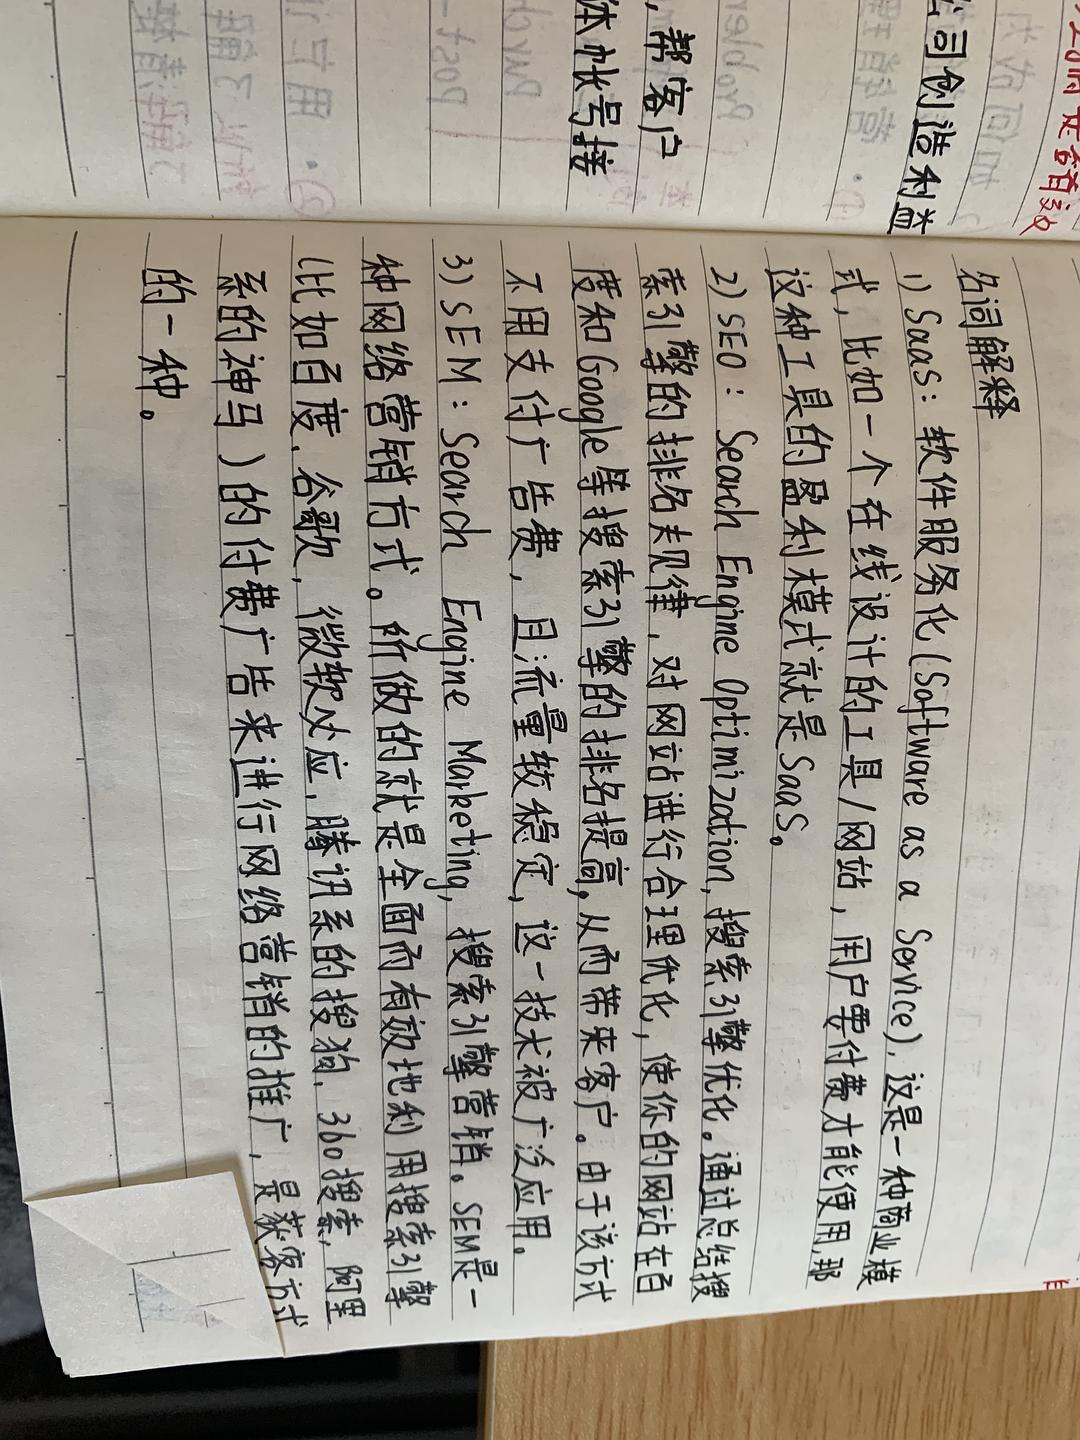 司创造利益
，帮客户
体帐号接
名词解释
1) SaaS：软件服务化(Software as a Service)，这是一种商业模
式，比如一个在线设计的工具/网站，用户要付费才能使用，那
这种工具的盈利模式就是SaaS。
2) SEO：Search Engine Optimization，搜索引擎优化。通过总结搜
索引擎的排名规律，对网站进行合理优化，使你的网站在百
度和Google等搜索引擎的排名提高，从而带来客户。由于该方式
不用支付广告费，且流量较稳定，这一技术被广泛应用。
3) SEM：Search Engine Marketing，搜索引擎营销。SEM是一
种网络营销方式。所做的就是全面而有效地利用搜索引擎
(比如百度、谷歌，微软必应，腾讯系的搜狗，360搜索，阿里
系的神马)的付费广告来进行网络营销的推广，是获客方式
的一种。